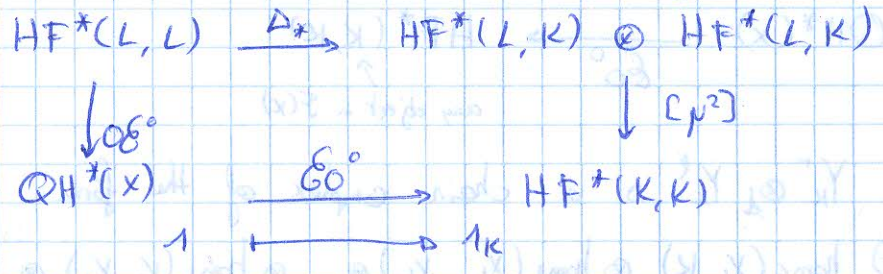 HF*(L,L) →Δ* HF*(L,K) ⊗ HF*(L,K)
↓ OC° ↓ [μ²]
QH*(X) →CO° HF*(K,K)
1 ↦ 1_K